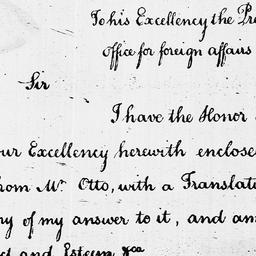 To his Excellency the Pre
Office for foreign affairs
Sir
I have the Honor
our Excellency herewith enclose
hom Mr. Otto, with a Translati
ny of my answer to it, and am
ct and Esteem &ca